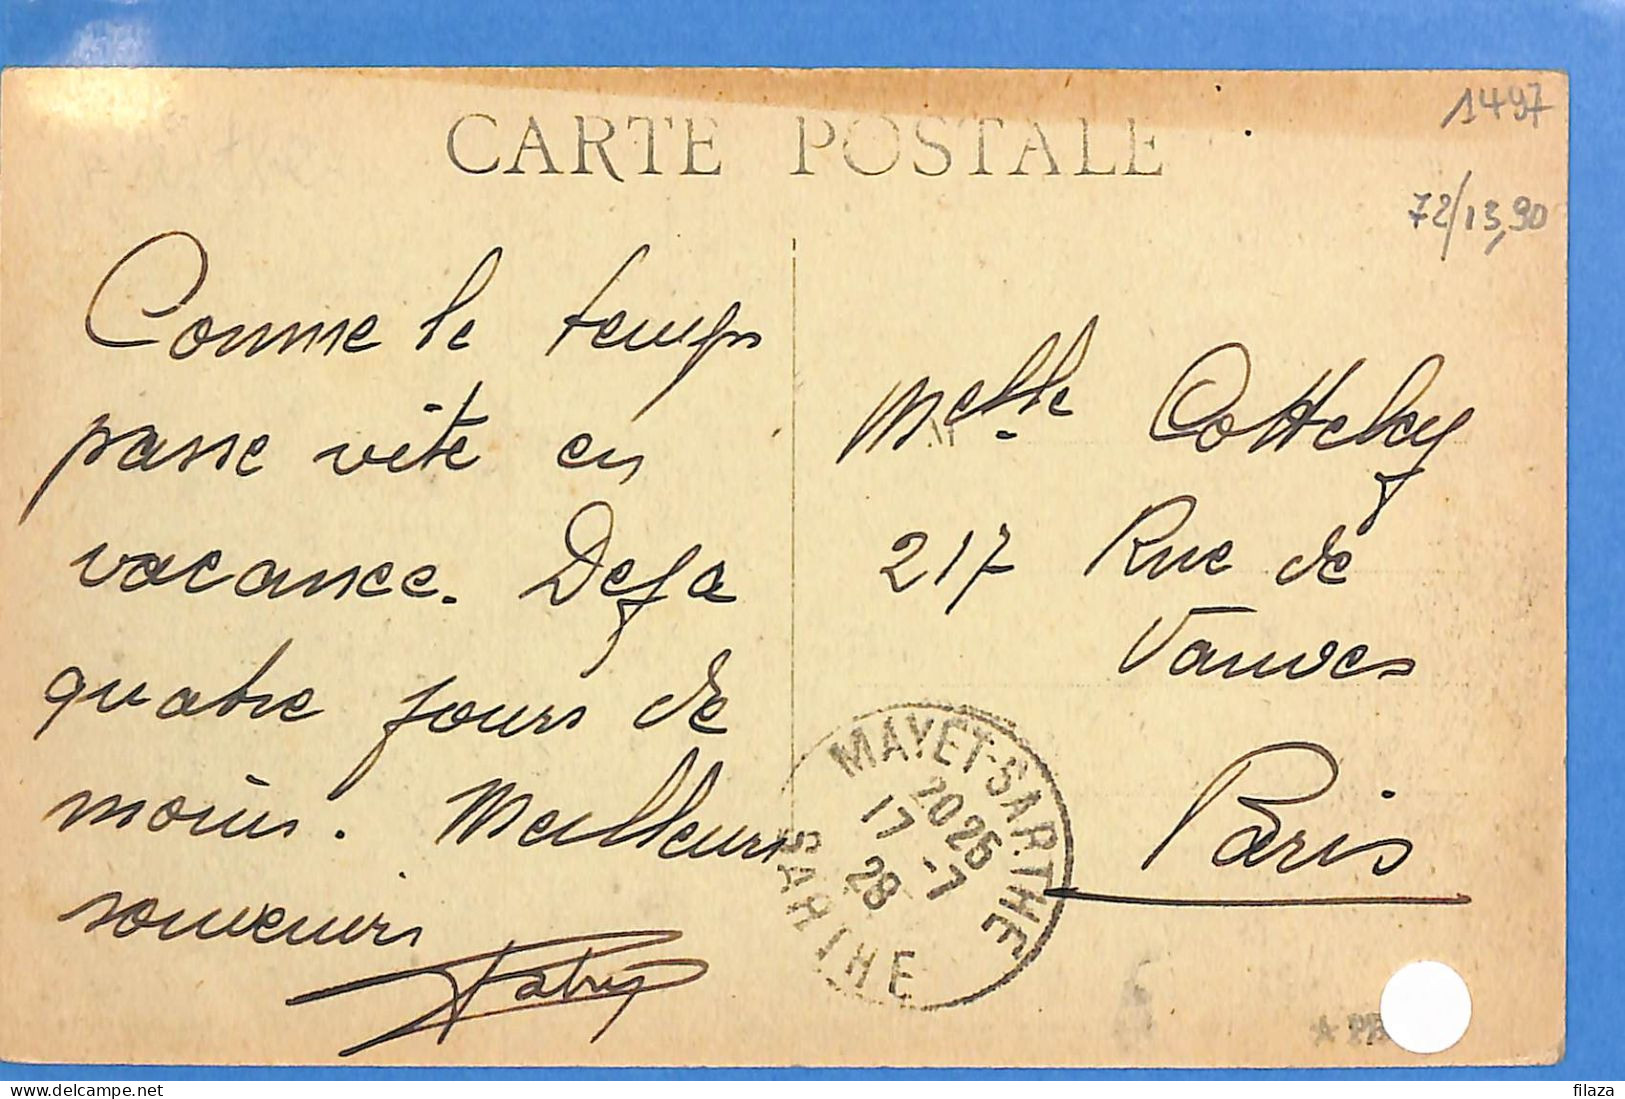 CARTE POSTALE
1497
72/13,90
Comme le temps
passe vite en
vacance. Deja
quatre jours de
moins. Meilleurs
souvenirs
Melle Cotteley
217 Rue de
Vanves
Paris
MAYET-SARTHE
20 25
17 -7
28
SARTHE
filaza